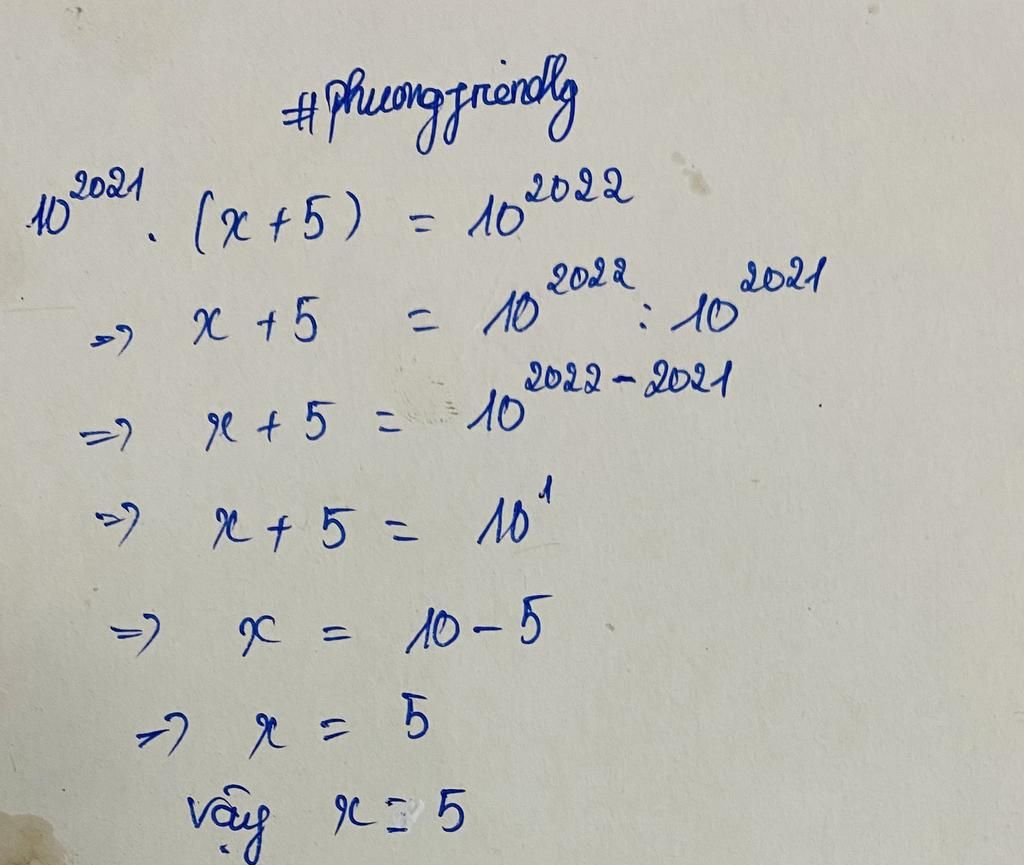 #Phuongfriendly
10^2021 . (x + 5) = 10^2022
=> x + 5 = 10^2022 : 10^2021
=> x + 5 = 10^2022 - 2021
=> x + 5 = 10^1
=> x = 10 - 5
=> x = 5
vậy x = 5